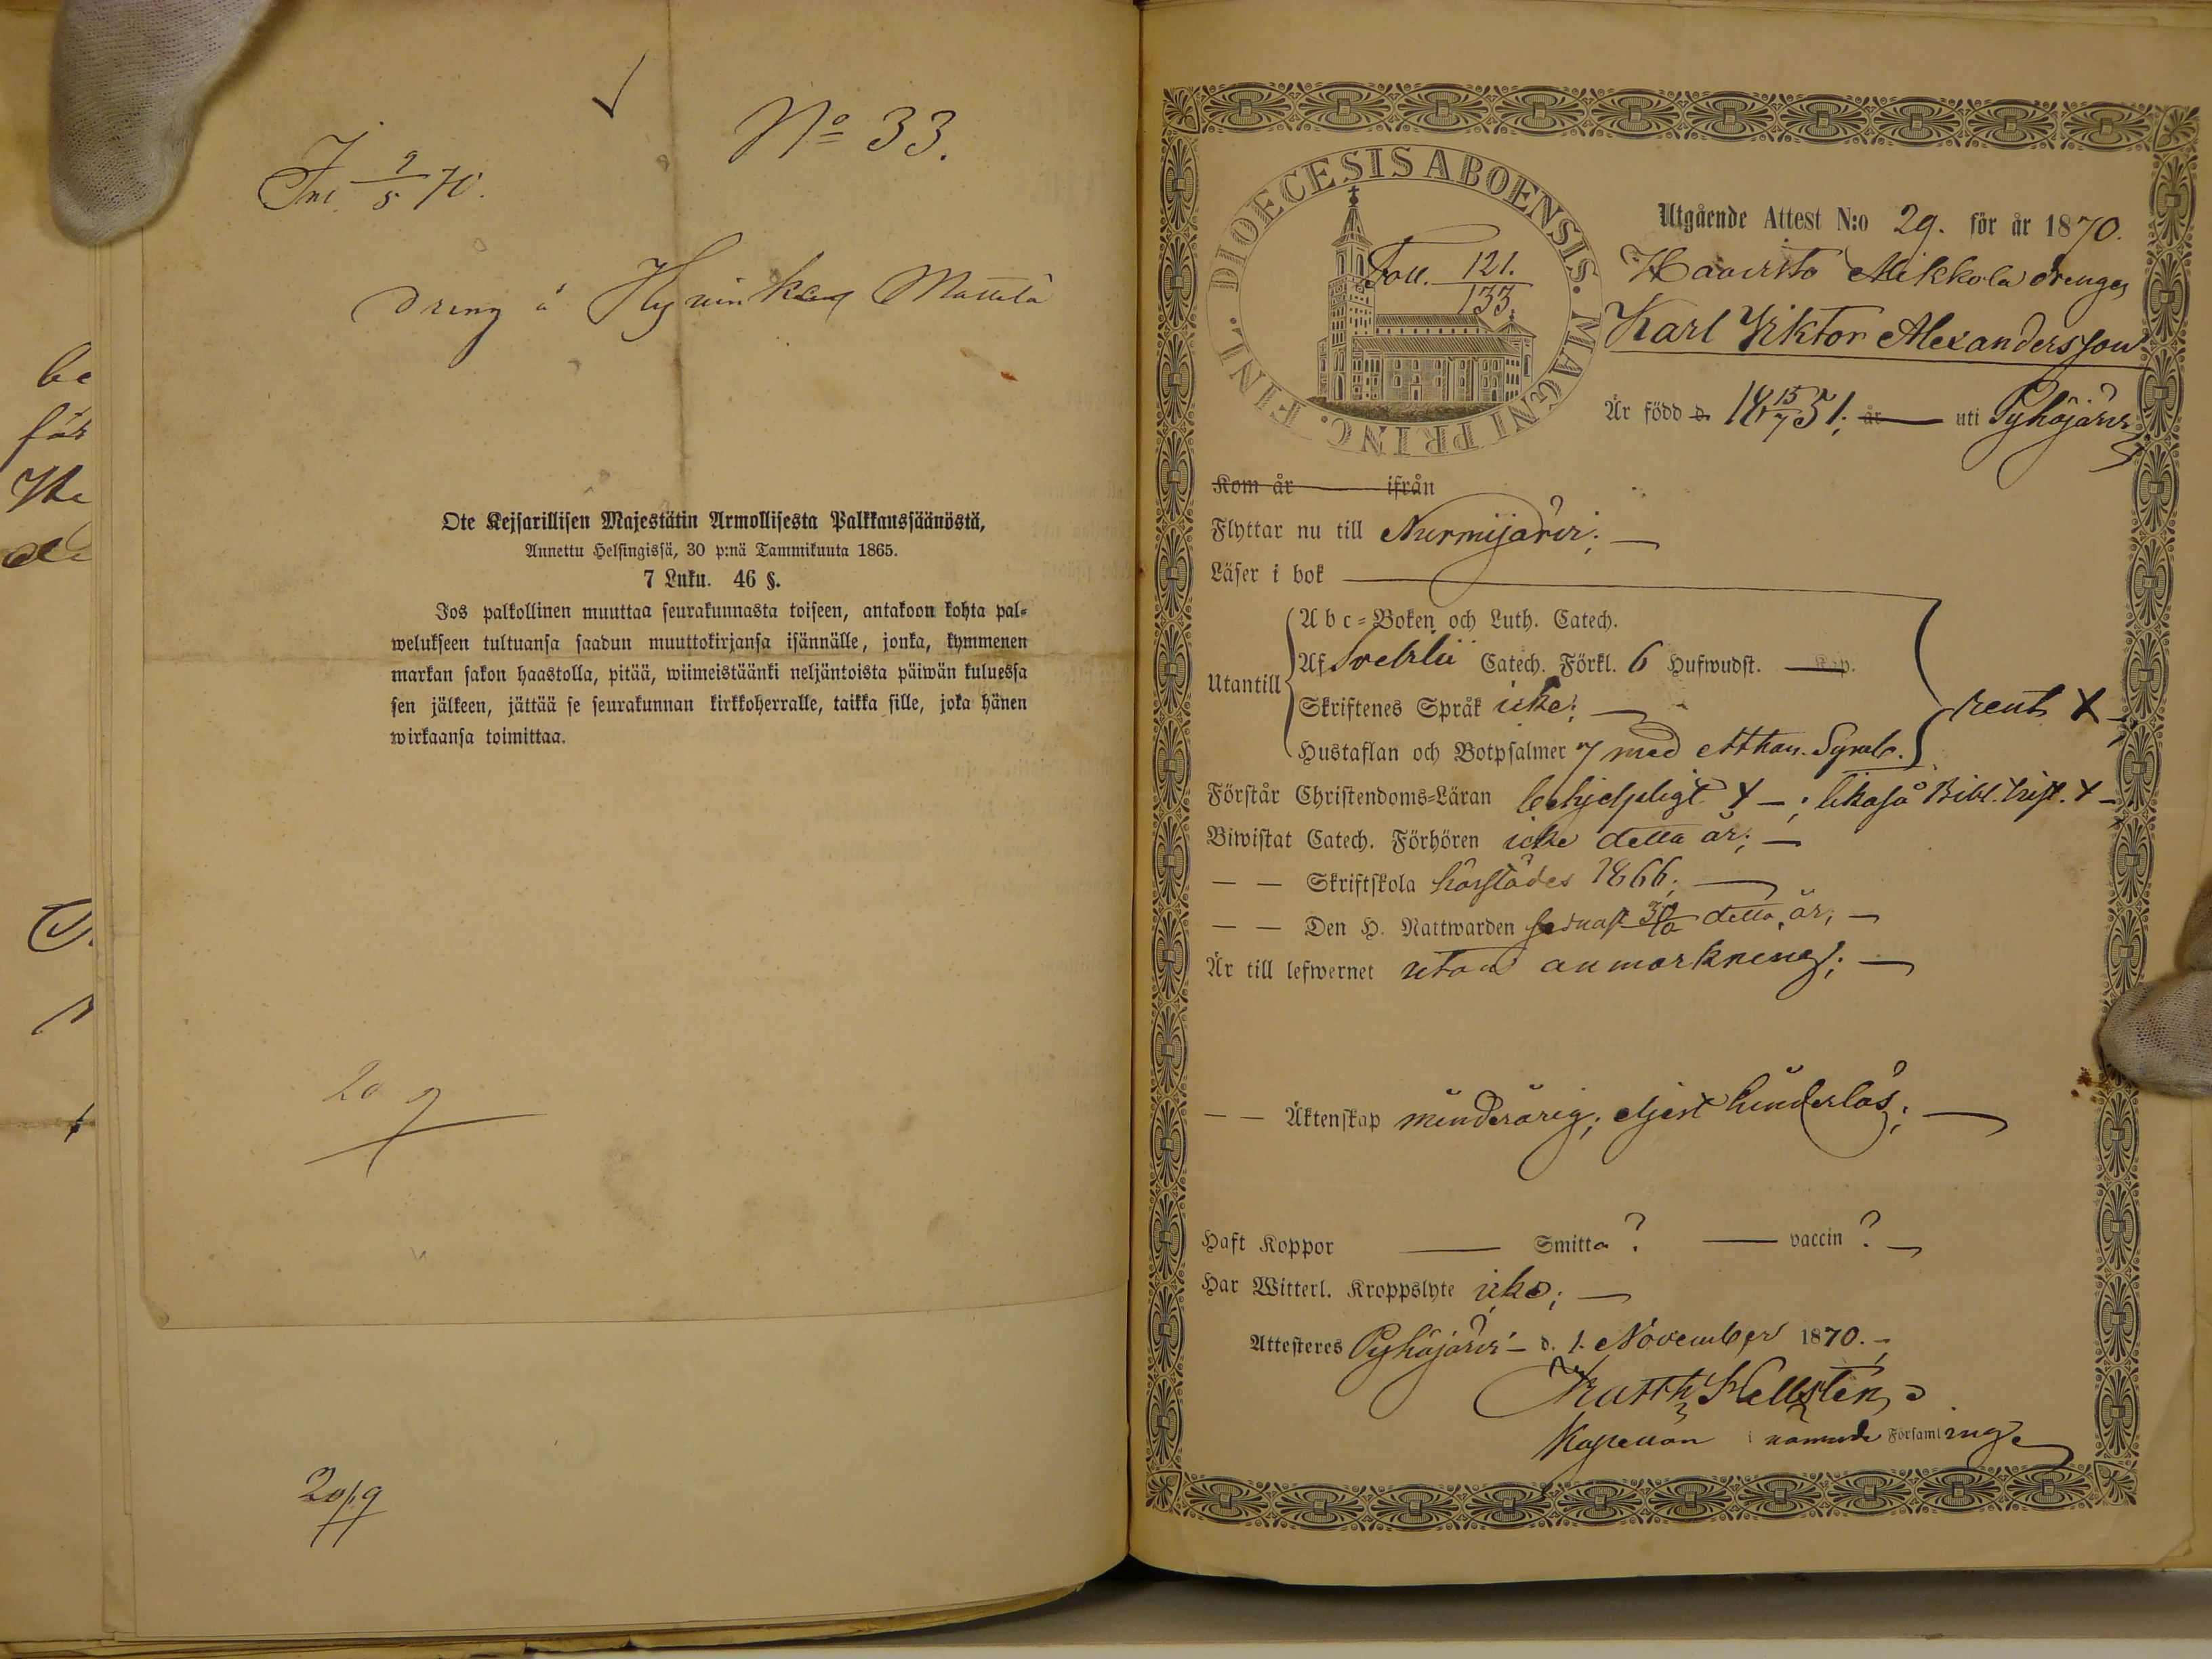 ✓
No 33.
Inl. 9/5 70.
Dreng å Hyvinkää Mattila
Ote Keisarillisen Majestätin Armollisesta Palkkaussäänöstä,
Annettu Helsingissä, 30 p:nä Tammikuuta 1865.
7 Luku. 46 §.
Jos palkollinen muuttaa seurakunnasta toiseen, antakoon kohta pal-
welukseen tultuansa saadun muuttokirjansa isännälle, jonka, kymmenen
markan sakon haastolla, pitää, wiimeistäänki neljäntoista päiwän kuluessa
sen jälkeen, jättää se seurakunnan kirkkoherralle, taikka sille, joka hänen
wirkaansa toimittaa.
be
för
DIOECESIS ABOENSIS. MAGNI PRINC. FINL.
Foll. 121.
133.
Utgående Attest N:o 29. för år 1870.
Haavisto Mikkola drengen
Karl Viktor Alexandersson
Är född d. 18 15/7 51; år uti Pyhäjärvi
Kom år ifrån
Flyttar nu till Nurmijärvi; —
Läser i bok
Utantill
Abc-Boken och Luth. Catech.
Af Svebilii Catech. Förkl. 6 Hufwudst. Kap.
Skriftenes Språk icke; —
Hustaflan och Botpsalmer 7 med Athan. Symb.
rent X
Förstår Christendoms-Läran behjelpligt X —; likaså Bibl. hist. X —
Biwistat Catech. Förhören icke detta år; —
— — Skriftskola härstädes 1866; —
— — Den H. Nattwarden sednast 30/10 detta år; —
Är till lefwernet utan anmärkning; —
— — Äktenskap minderårig; eljest hinderlös; —
Haft Koppor — Smitta? — vaccin? —
Har Witterl. Kroppslyte icke; —
Attesteres Pyhäjärvi — d. 1. November 1870. —
Matth. Hellstén
Kapellan i nämnde Församling